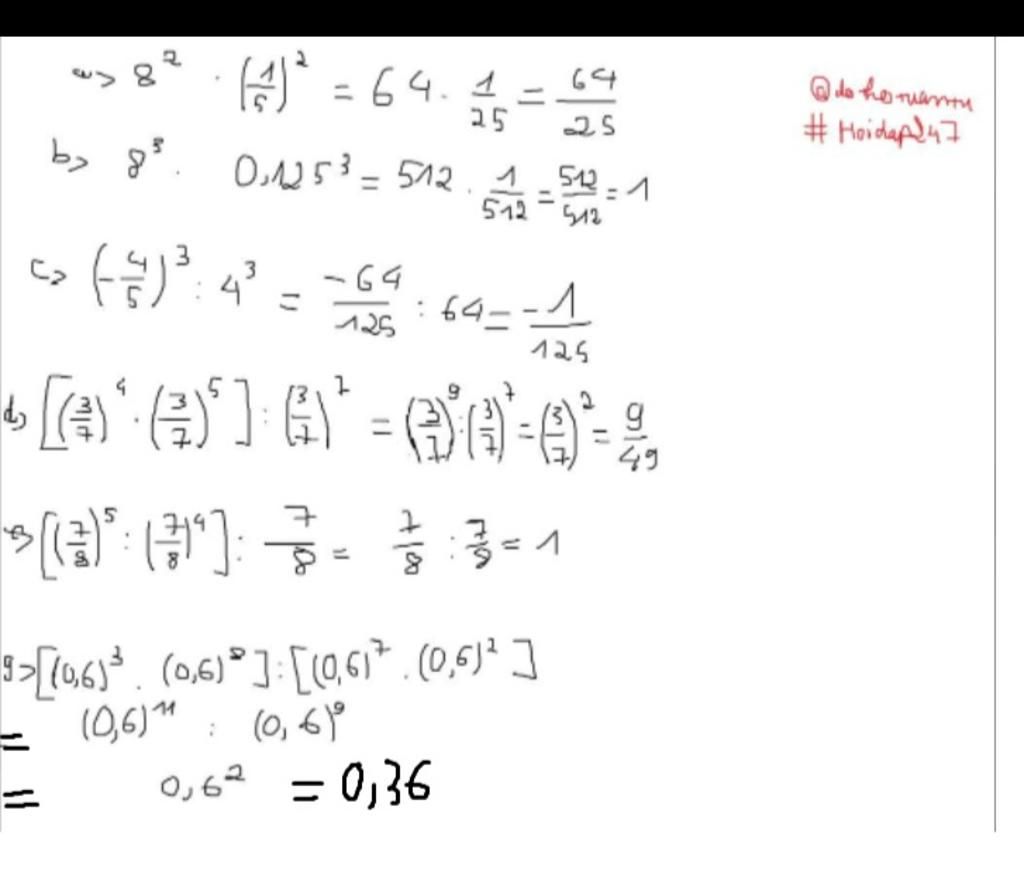 a> 8² . (1/5)² = 64 . 1/25 = 64/25
@dohonam
#Hoidap247
b> 8³ . 0,125³ = 512 . 1/512 = 512/512 = 1
c> (-4/5)³ : 4³ = -64/125 : 64 = -1/125
d> [(3/7)⁴ . (3/7)⁵] : (3/7)⁷ = (3/7)⁹ : (3/7)⁷ = (3/7)² = 9/49
e> [(7/8)⁵ : (7/8)⁴] : 7/8 = 7/8 : 7/8 = 1
g> [(0,6)³ . (0,6)⁸] : [(0,6)⁷ . (0,6)²]
= (0,6)¹¹ : (0,6)⁹
= 0,6² = 0,36